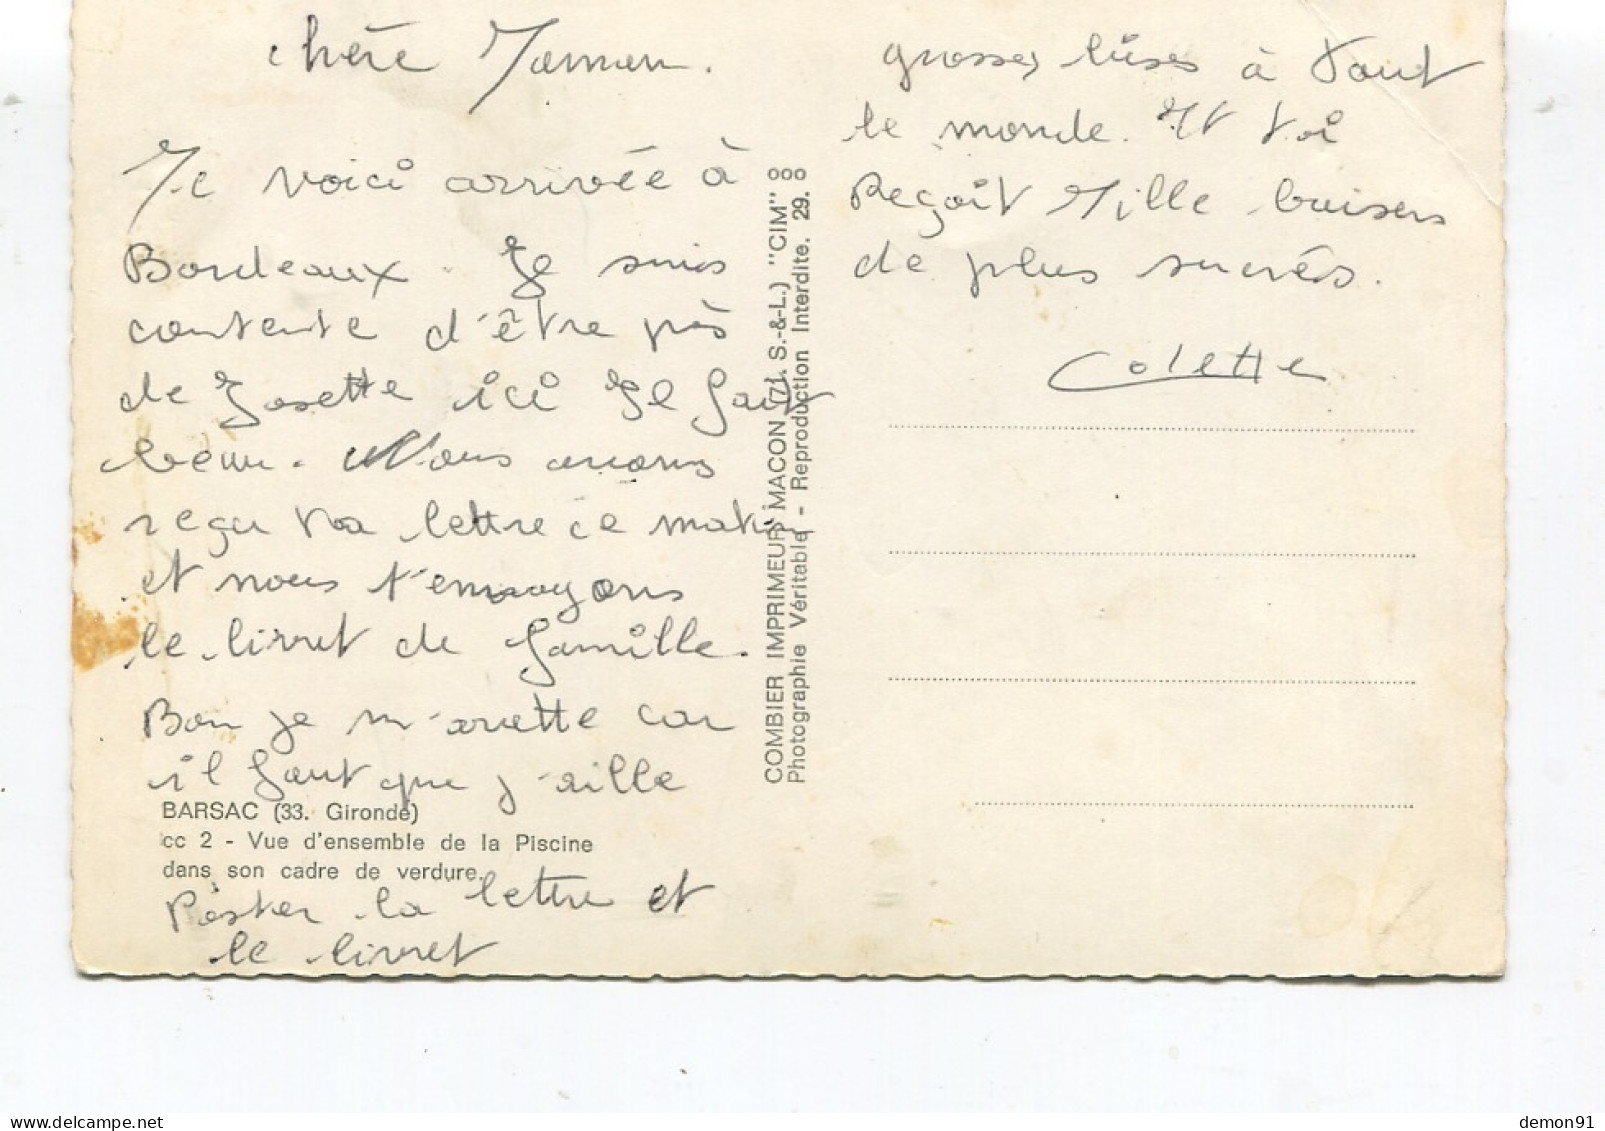 chère Maman.
Me voici arrivée à
Bordeaux. Je suis
contente d'être près
de Josette ici Il fait
beau. Nous avons
reçu ta lettre ce matin
et nous t'envoyons
le livret de famille.
Bon je m'arrette car
il faut que j'aille
BARSAC (33. Gironde)
cc 2 - Vue d'ensemble de la Piscine
dans son cadre de verdure.
Poster la lettre et
le livret
COMBIER IMPRIMEUR MACON (71. S.-&-L.) "CIM"
Photographie Véritable - Reproduction Interdite. 29.
grosses bises à tout
le monde. Et toi
Reçoit Mille baisers
de plus sucrés.
Colette
demon91